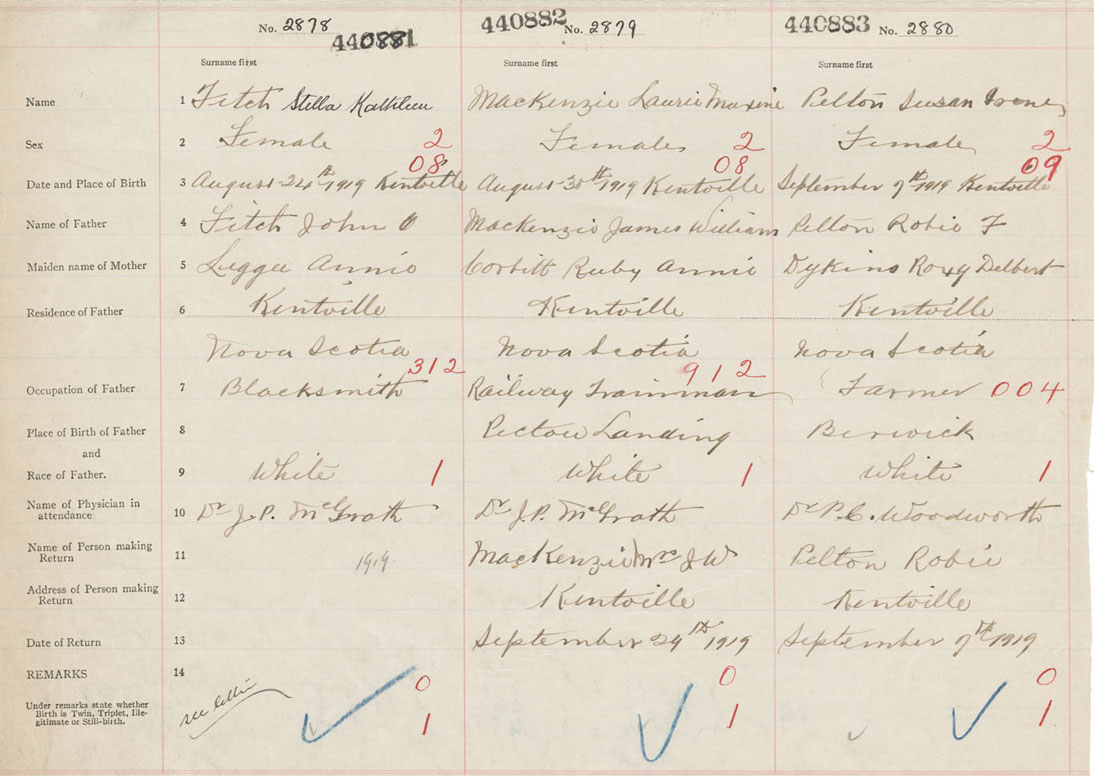 No. 2878 440882 No. 2879 440883 No. 2880
440881
Surname first Surname first Surname first
Name 1 Fitch Stella Kathleen MacKenzie Laurie Maxine Pelton Susan Irene
Sex 2 Female 2 Female 2 Female 2
08 08 09
Date and Place of Birth 3 August 24th 1919 Kentville August 30th 1919 Kentville September 7th 1919 Kentville
Name of Father 4 Fitch John O MacKenzie James William Pelton Robie F
Maiden name of Mother 5 Annie Corbitt Ruby Annie Dykins Roxy Delbert
Residence of Father 6 Kentville Kentville Kentville
Nova Scotia Nova Scotia Nova Scotia
312 912
Occupation of Father 7 Blacksmith Railway Trainman Farmer 004
Place of Birth of Father 8 Pictou Landing Berwick
and
Race of Father. 9 White 1 White 1 White 1
Name of Physician in
attendance 10 Dr J.P. McGrath Dr J.P. McGrath Dr P.C. Woodworth
Name of Person making
Return 11 1919 MacKenzie Mrs J W Pelton Robie
Address of Person making
Return 12 Kentville Kentville
Date of Return 13 September 29th 1919 September 9th 1919
REMARKS 14 0 0 0
Under remarks state whether
Birth is Twin, Triplet, Ille-
gitimate or Still-birth. see 1 1 1